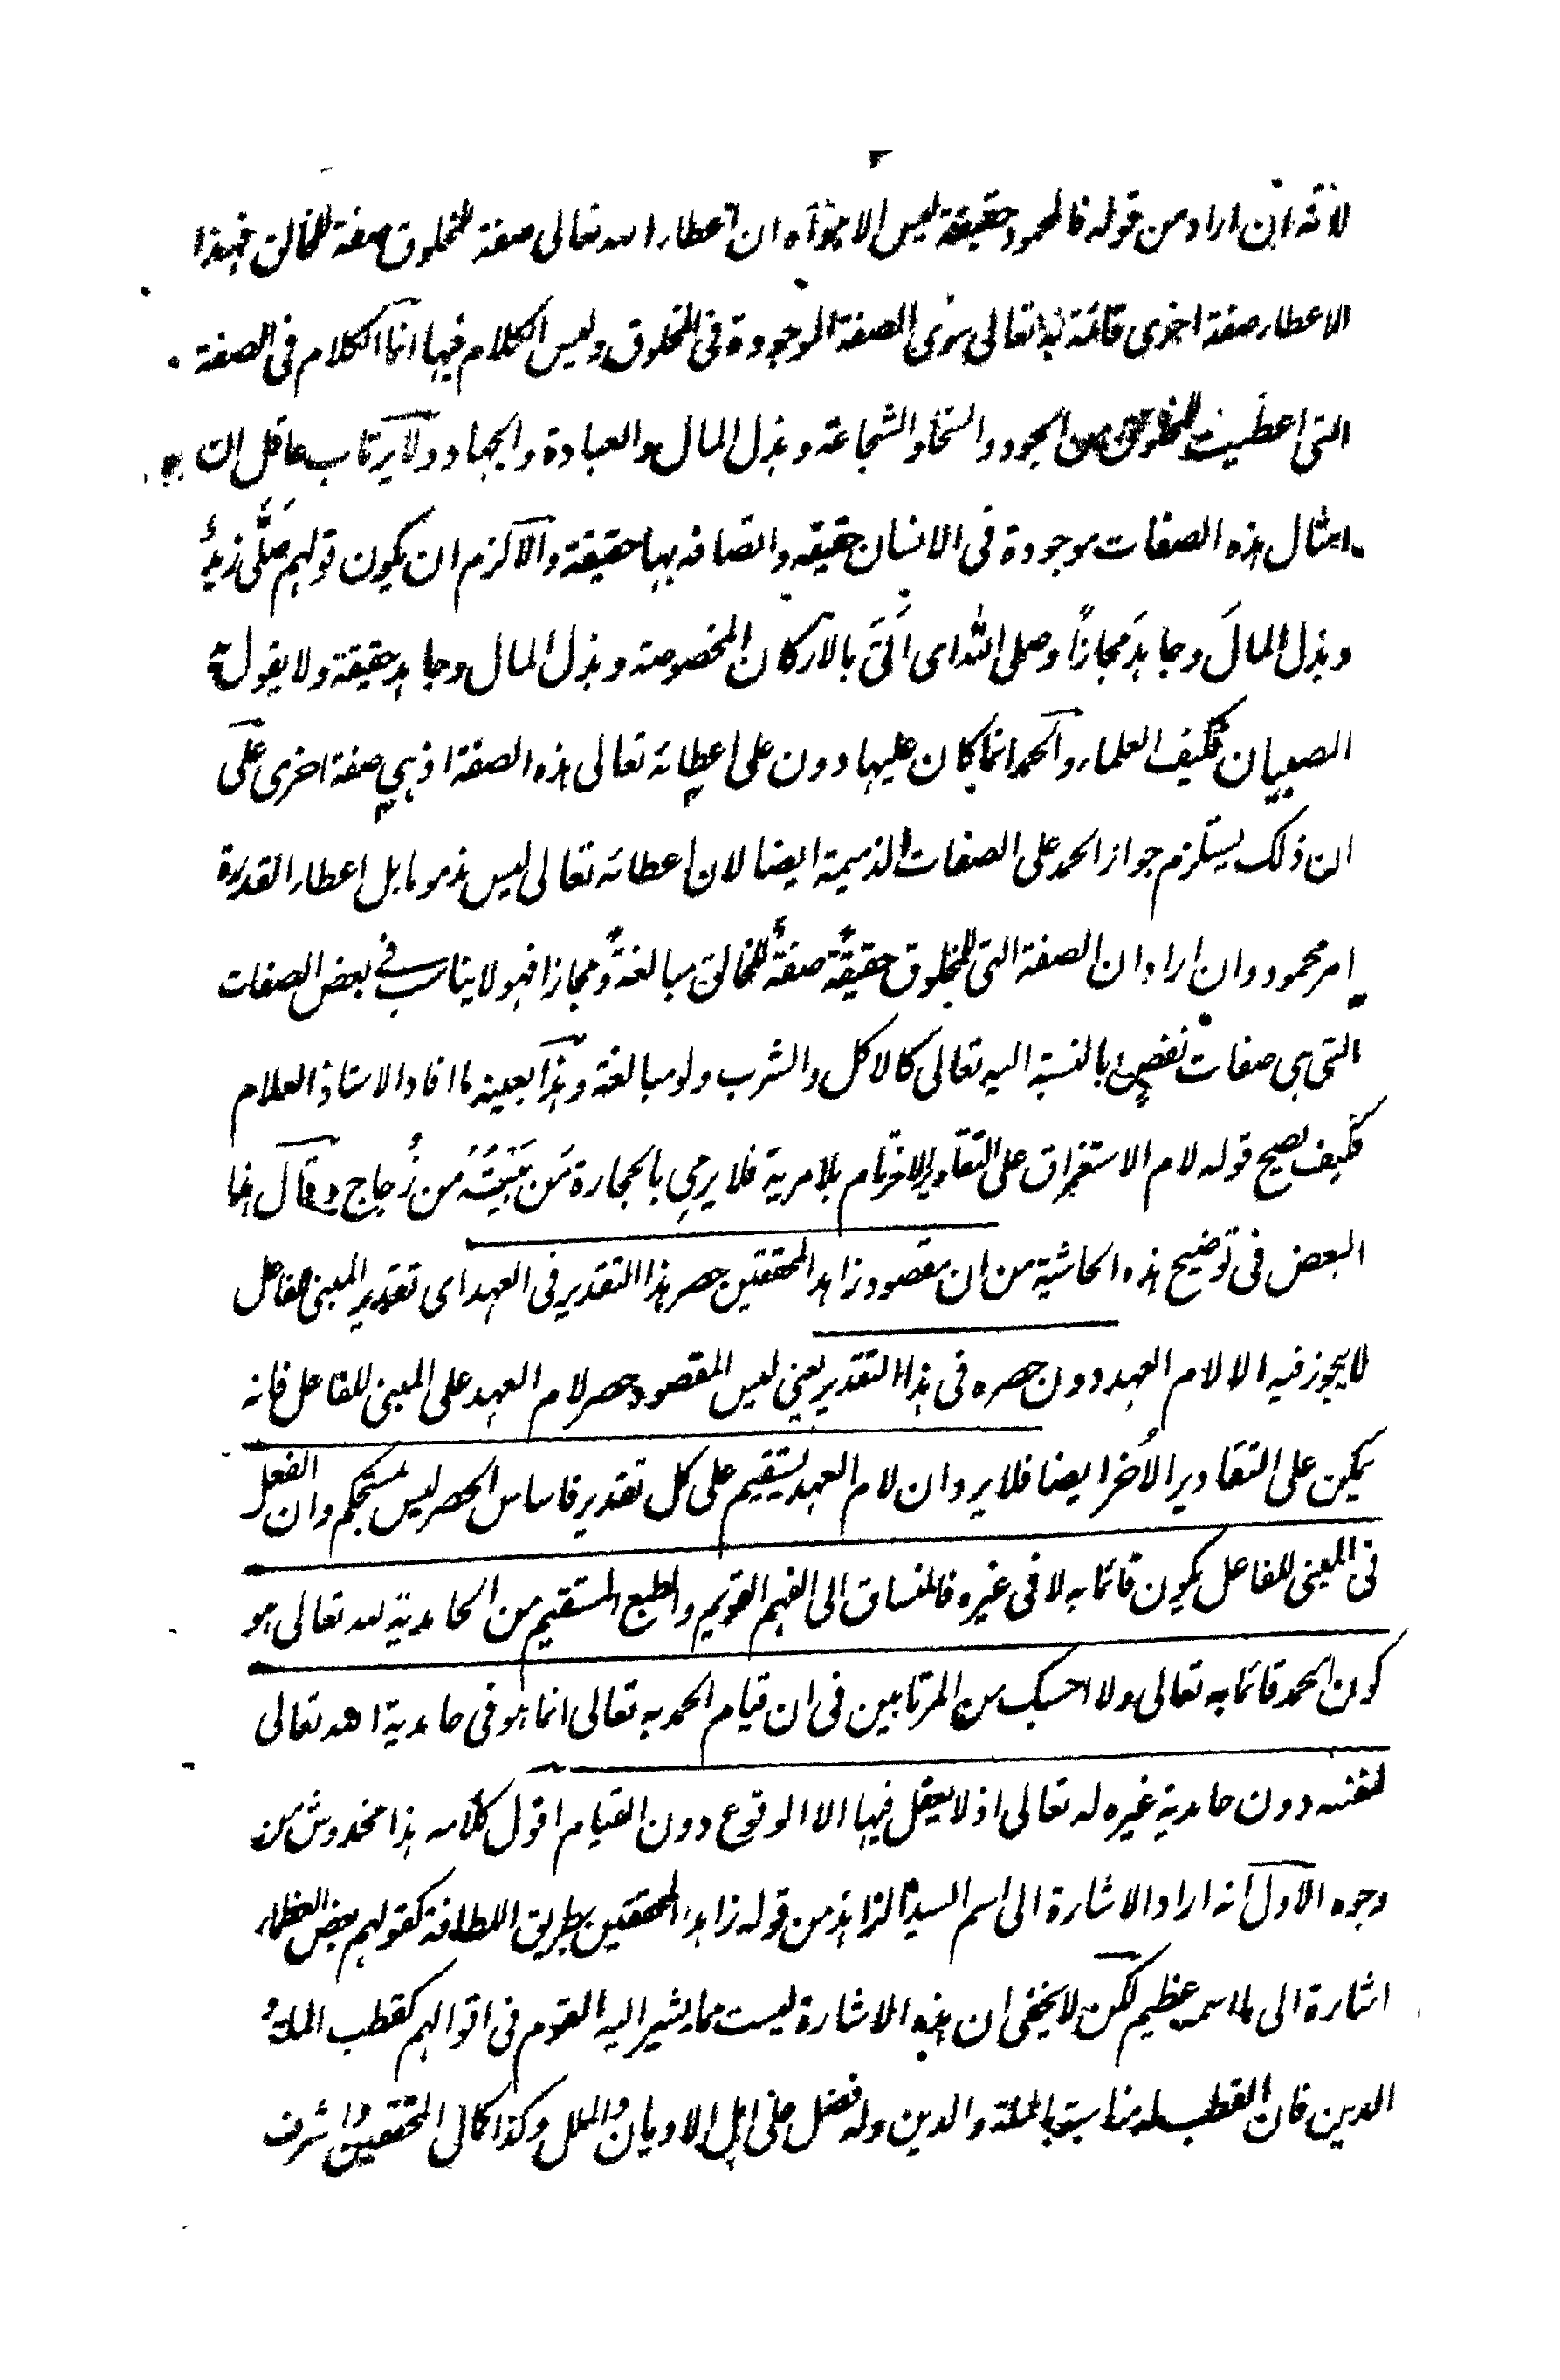 لانه ان اراد من قوله فالمحمود حقيقة ليس الا هو آه ان اعطاء الله تعالى صفة للمخلوق صفة للخالق فهذا
الاعطاء صفة اخرى قائمة به تعالى سوى الصفة الموجودة في المخلوق وليس الكلام فيها انما الكلام في الصفة
التي اعطيت للمخلوق من الجود والسخا والشجاعة وبذل المال والعبادة والجهاد ولا يرتاب عاقل ان
امثال هذه الصفات موجودة في الانسان حقيقة واتصافه بها حقيقة والا لزم ان يكون قولهم صَلَّى زيدٌ
وبذل المالَ وجاهدَ مجازاً وصلى الله اى اَتَى بالاركان المخصوصة وبذل المال وجاهد حقيقة ولا يقول به
الصبيان فكيف العلماء والحمد انما كان عليها دون على اعطائه تعالى هذه الصفة اذ هي صفة اخرى على
ان ذلك يستلزم جواز الحمد على الصفات الذميمة ايضا لان اعطائه تعالى ليس مذموما بل اعطاء القدرة
امر محمود وان اراد ان الصفة التي للمخلوق حقيقةً صفةٌ للخالق مبالغةً ومجازا فهو لا يناسب في بعض الصفات
التي هي صفات نقص بالنسبة اليه تعالى كالاكل والشرب ولو مبالغة وهذا بعينه ما افاد الاستاذ العلام
فكيف يصح قوله لام الاستغراق على التقادير الاخر تام بلا مرية فلا يرمي بالحجارة مَن بَيْتُهُ من زُجاج وقال هذا
البعض في توضيح هذه الحاشية من ان مقصود زاهد المحققين حصر هذا التقدير في العهد اى تقدير المبني للفاعل
لا يجوز فيه الا لام العهد دون حصره في هذا التقدير يعني ليس المقصود حصر لام العهد على المبني للفاعل فانه
يمكن على التقادير الاُخر ايضا فلا يرد ان لام العهد يستقيم على كل تقدير فاساس الحصر ليس بمستحكم وان الفعل
في المبني للفاعل يكون قائما به لا في غيره فالمنساق الى الفهم القويم والطبع المستقيم من الحامدية لله تعالى هو
كون الحمد قائما به تعالى ولا احسبك من المرتابين في ان قيام الحمد به تعالى انما هو في حامدية الله تعالى
لنفسه دون حامدية غيره له تعالى اذ لا يعقل فيها الا الوقوع دون القيام اقول كلامه هذا مخدوش من
وجوه الاول انه اراد الاشارة الى اسم السيد الزاهد من قوله زاهد المحققين بطريق اللطافة كقولهم بعض العظماء
اشارة الى ما اسمه عظيم لكن لا يخفى ان هذه الاشارة ليست مما يشير اليه القوم في اقوالهم كقطب الملة و
الدين فان القطب له مناسبة بالملة والدين وله فضل على اهل الاديان والملل وكذا كمال المحققين واشرف